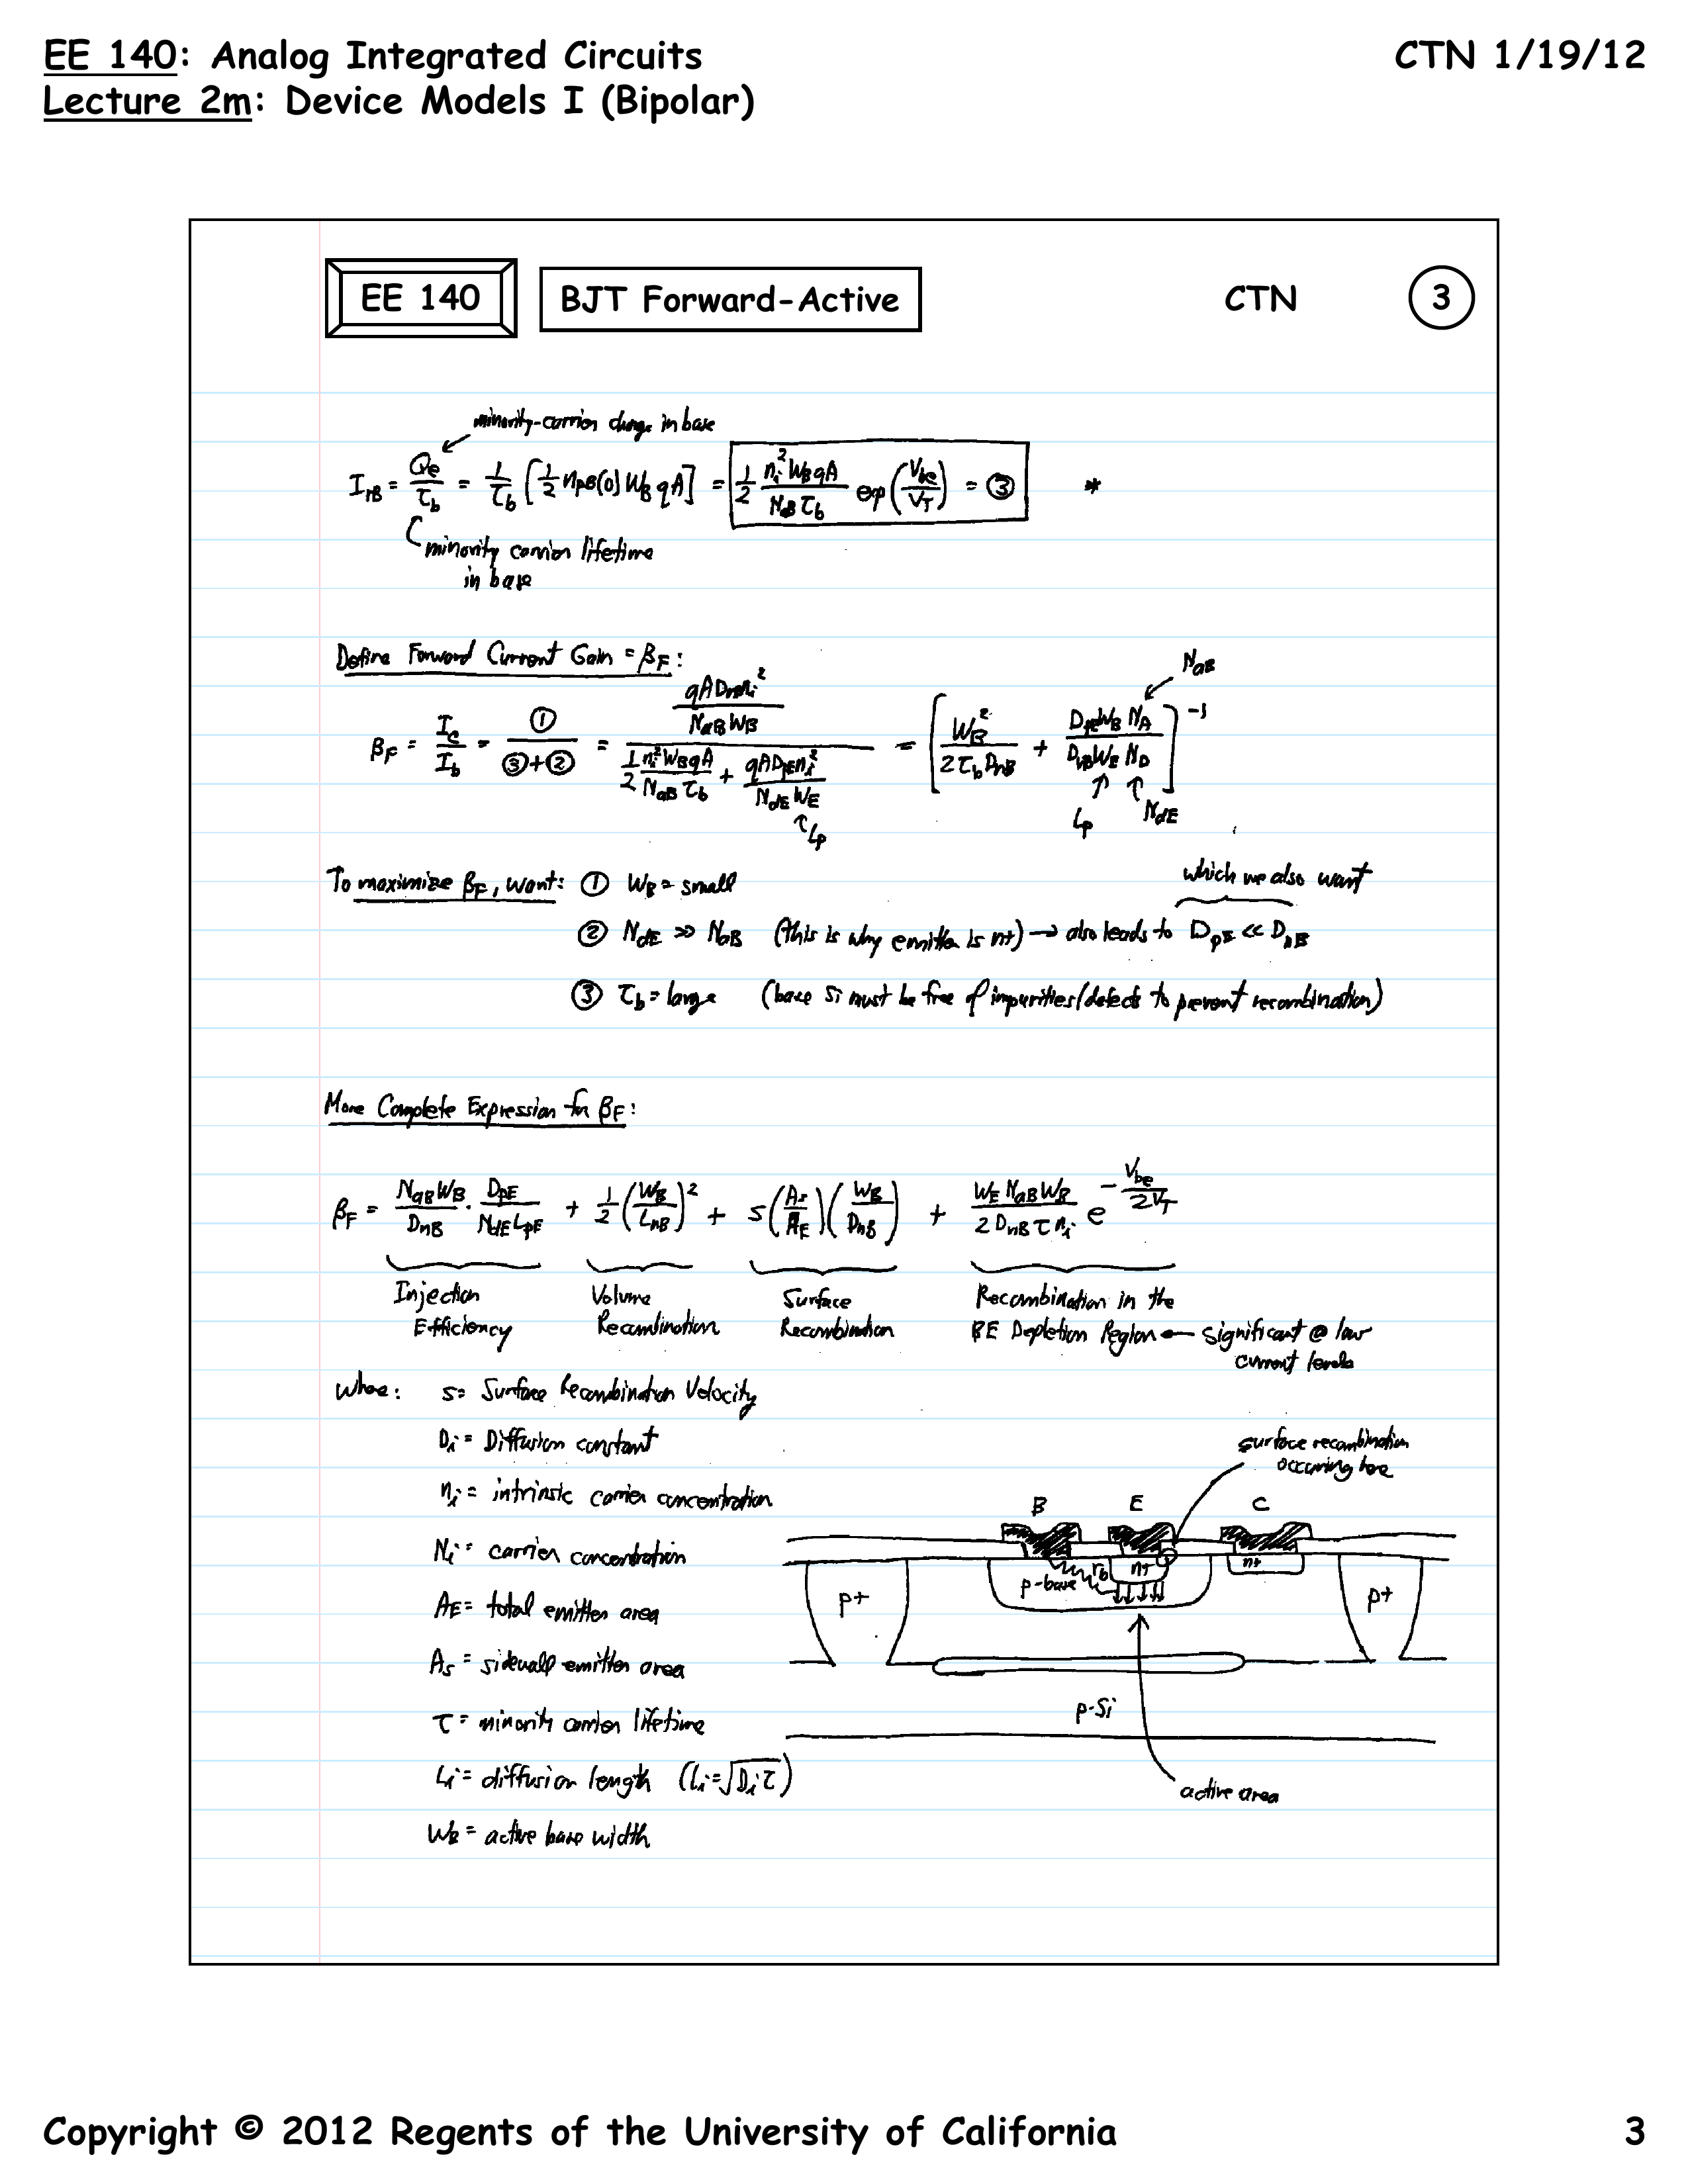 EE 140: Analog Integrated Circuits CTN 1/19/12
Lecture 2m: Device Models I (Bipolar)
EE 140 BJT Forward-Active CTN 3
minority-carrier charge in base
I_rB = Q_e/τ_b = 1/τ_b [1/2 n_pB(0) W_B q A] = 1/2 (n_i^2 W_B q A)/(N_aB τ_b) exp(V_be/V_T) = ③ *
minority carrier lifetime
in base
Define Forward Current Gain = β_F:
β_F = I_c/I_b = ①/(③+②) = (qAD_nB n_i^2/(N_aB W_B))/(1/2 (n_i^2 W_B qA)/(N_aB τ_b) + (qAD_pE n_i^2)/(N_dE W_E)) = [W_B^2/(2τ_b D_nB) + (D_pE W_B N_A)/(D_nB W_E N_D)]^-1
N_aB
L_p
L_p
N_dE
To maximize β_F, want: ① W_B = small
which we also want
② N_dE >> N_aB (this is why emitter is n+) → also leads to D_pE << D_nB
③ τ_b = large (base Si must be free of impurities/defects to prevent recombination)
More Complete Expression for β_F:
β_F = (N_aB W_B)/D_nB · D_pE/(N_dE L_pE) + 1/2 (W_B/L_nB)^2 + s(A_s/A_E)(W_B/D_nB) + (W_E N_aB W_B)/(2 D_nB τ n_i) e^(-V_be/2V_T)
Injection Efficiency
Volume Recombination
Surface Recombination
Recombination in the BE Depletion Region ← significant @ low current levels
where: s = Surface Recombination Velocity
D_i = Diffusion constant
n_i = intrinsic carrier concentration
N_i = carrier concentration
A_E = total emitter area
A_s = sidewall emitter area
τ = minority carrier lifetime
L_i = diffusion length (L_i = √(D_i τ))
W_B = active base width
surface recombination
occuring here
B E C
p+ p-base r_b n+ n+ p+
p-Si
active area
Copyright © 2012 Regents of the University of California 3